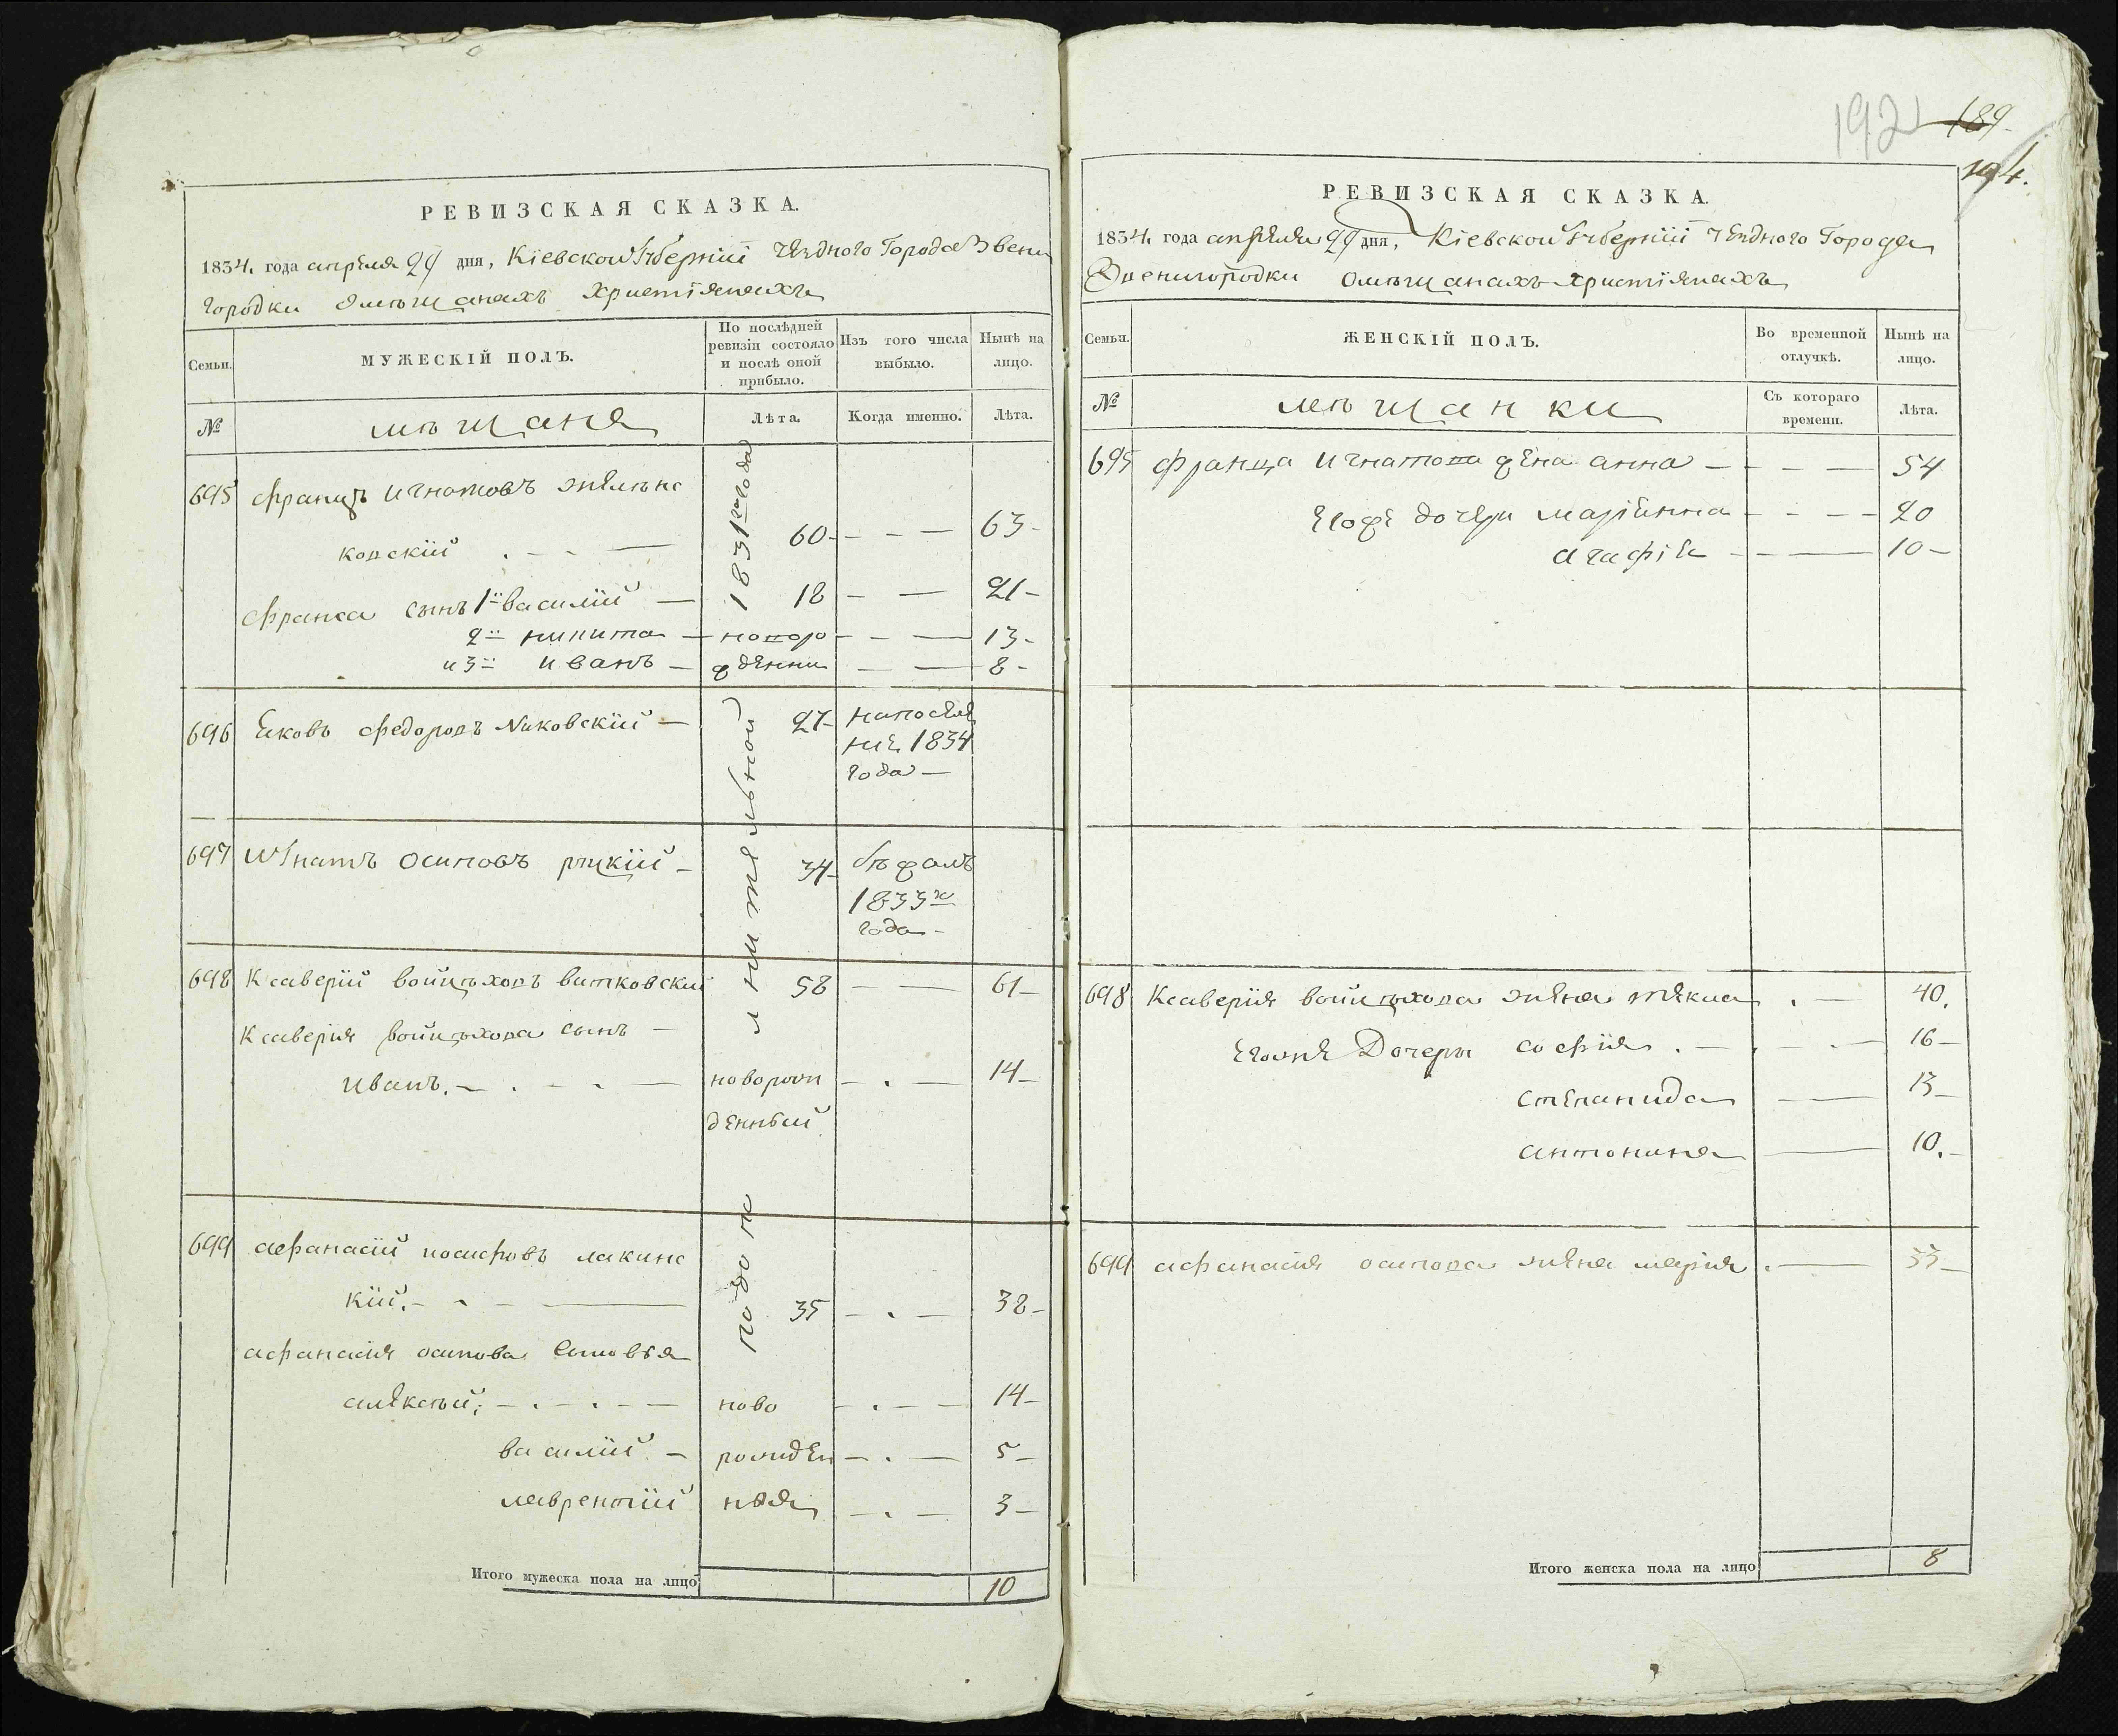 192 189
194.
РЕВИЗСКАЯ СКАЗКА.
1834. года апреля 29 дня, Кіевской Губерніи уезднаго Города Звени
городки омѣщанахъ христіянахъ
Семьи.
МУЖЕСКІЙ ПОЛЪ.
По послѣдней ревизіи состояло и послѣ оной прибыло.
Изъ того числа выбыло.
Нынѣ на лицо.
№
мѣщане
Лѣта.
Когда именно.
Лѣта.
1831го года
дополнительной
695 Францъ Игнатовъ
ковскій 60 63
Франса сынъ 1й василій 18 21
2й никита новоро 13
и 3й иванъ жденни 8
696 Яковъ Федоровъ Яиковскій 27 напоселе
ніе 1834
года
697 Игнатъ Осиповъ 34 бѣжалъ
1833го
года
698 Ксаверій войцѣховъ витковскій 58 61
Ксаверія войцѣхова сынъ
иванъ. новорож 14
денный
699 афанасій иосифовъ лакинс
кій. 35 38
афанасія осипова сыновья
алексѣй; ново 14
василій рожден 5
лаврентій ныя 3
Итого мужеска пола на лицо 10
РЕВИЗСКАЯ СКАЗКА.
1834. года апреля 29 дня, Кіевской Губерніи уезднаго Города
Звенигородки омѣщанахъ христіянахъ
Семьи.
ЖЕНСКІЙ ПОЛЪ.
Во временной отлучкѣ.
Нынѣ на лицо.
№
мѣщанки
Съ котораго времени.
Лѣта.
695 Франца Игнатова жена анна 54
Егоже дочери маріянна 20
агафія 10
698 Ксаверія войцѣхова жена текла 40.
Егоже Дочери софія. 16
степанида 13
антонина 10.
699 афанасія осипова жена марія 33
Итого женска пола на лицо 8